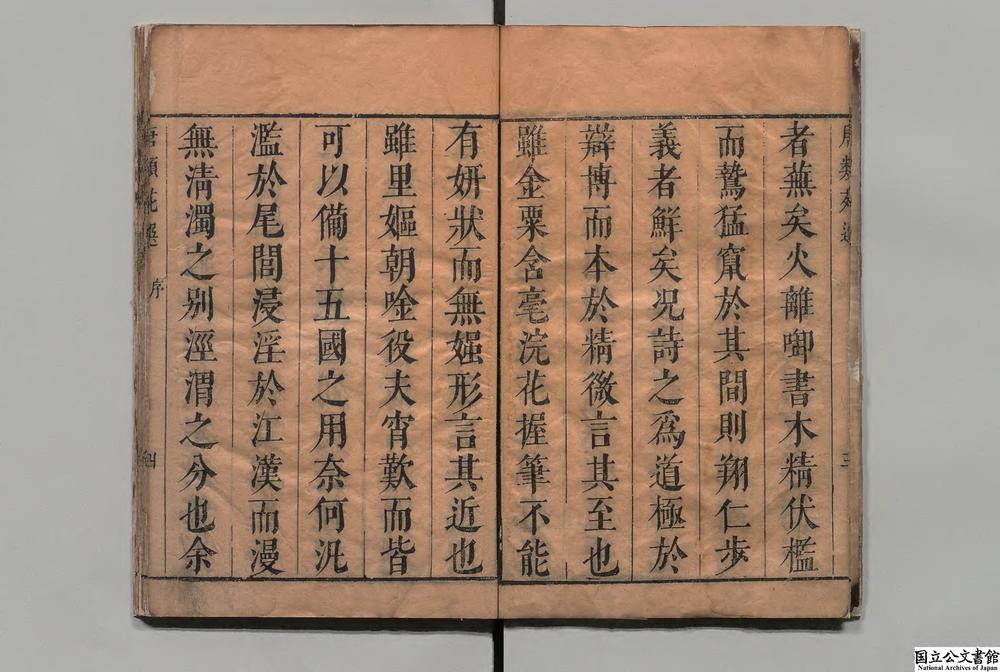 唐類苑選
三
者蕪矣火離啣書木精伏檻
而鷙猛竄於其間則翔仁步
義者鮮矣况詩之爲道極於
辯博而本於精微言其至也
雖金粟含毫浣花握筆不能
有妍狀而無媸形言其近也
雖里嫗朝唫役夫宵歎而皆
可以備十五國之用奈何汎
濫於尾閭浸淫於江漢而漫
無清濁之别涇渭之分也余
唐類苑選
序
四
国立公文書館
National Archives of Japan